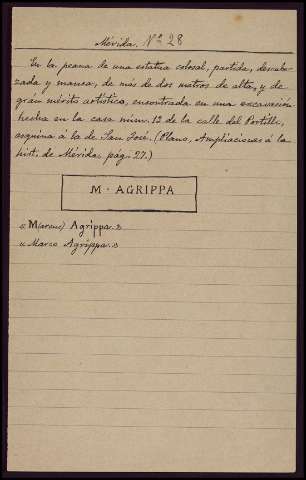 Mérida. Nº 28
En la peana de una estatua colosal, partida, descabe-
zada y manca, de más de dos metros de alta, y de
grán mérito artístico, encontrada en una excavación
hecha en la casa núm. 12 de la calle del Portillo,
esquina á la de San José. (Plano, Ampliaciones á la
hist. de Mérida, pág. 27.)
M · AGRIPPA
« M(arcus) Agrippa.»
« Marco Agrippa.»